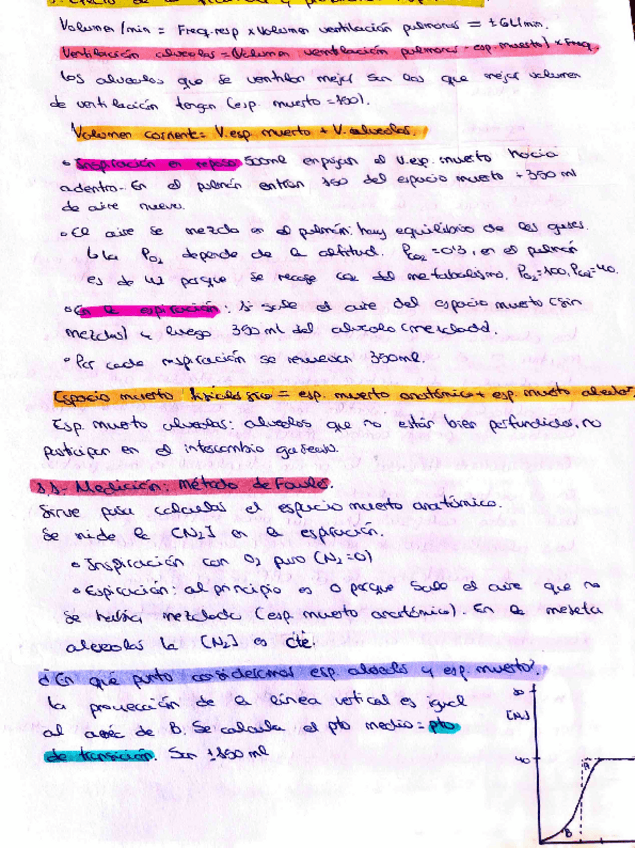 Volumen/min = Frec. resp x Volumen ventilación pulmonar = ±6L/min.
Ventilación alveolar = (Volumen ventilación pulmonar - esp. muerto) x Frec.
Los alveolos que se ventilan mejor son los que mejor volumen
de ventilación tengan (esp. muerto = 150).
Volumen corriente = V. esp. muerto + V. alveolar.
• Inspiración en reposo: 500ml empujan el V. esp. muerto hacia
adentro. En el pulmón entran 150 del espacio muerto + 350 ml
de aire nuevo.
• El aire se mezcla en el pulmón: hay equilibrio de los gases.
La PO2 depende de la altitud. PCO2 = 0'3, en el pulmón
es de 42 porque se recoge CO2 del metabolismo. PO2 = 100, PCO2 = 40.
• En la espiración: 1º sale el aire del espacio muerto (sin
mezclar) y luego 350 ml del alveolo (mezclado).
• Por cada respiración se renuevan 350ml.
Espacio muerto fisiológico = esp. muerto anatómico + esp. muerto alveolar.
Esp. muerto alveolar: alveolos que no están bien perfundidos, no
participan en el intercambio gaseoso.
Medición: Método de Fowler.
Sirve para calcular el espacio muerto anatómico.
Se mide la [N2] en la espiración.
• Inspiración con O2 puro (N2=0)
• Espiración: al principio es 0 porque sale el aire que no
se había mezclado (esp. muerto anatómico). En la meseta
alveolar la [N2] es cte.
¿En qué punto consideramos esp. alveolar y esp. muerto?
La proyección de la línea vertical es igual
al área de B. Se calcula el pto medio = pto
de transición. Son ±150 ml
[N2]
40
A
B